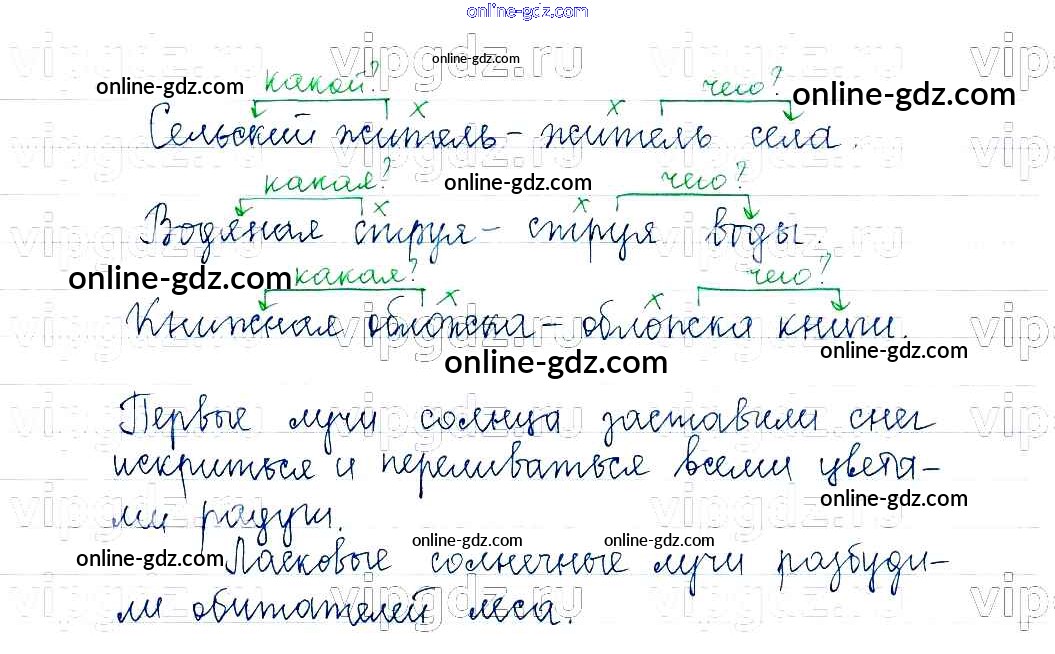 online-gdz.com
vipgdz.ru vipgdz.ru vip
online-gdz.com
какой? чего?
online-gdz.com online-gdz.com
х х
Сельский житель – житель села.
какая? online-gdz.com чего?
х х
Водяная струя – струя воды.
online-gdz.com какая? чего?
х х
Книжная обложка – обложка книги.
online-gdz.com online-gdz.com
Первые лучи солнца заставили снег
искриться и переливаться всеми цвета-
online-gdz.com
ми радуги.
online-gdz.com online-gdz.com online-gdz.com
Ласковые солнечные лучи разбуди-
ли обитателей леса.
vipgdz.ru vipgdz.ru vip